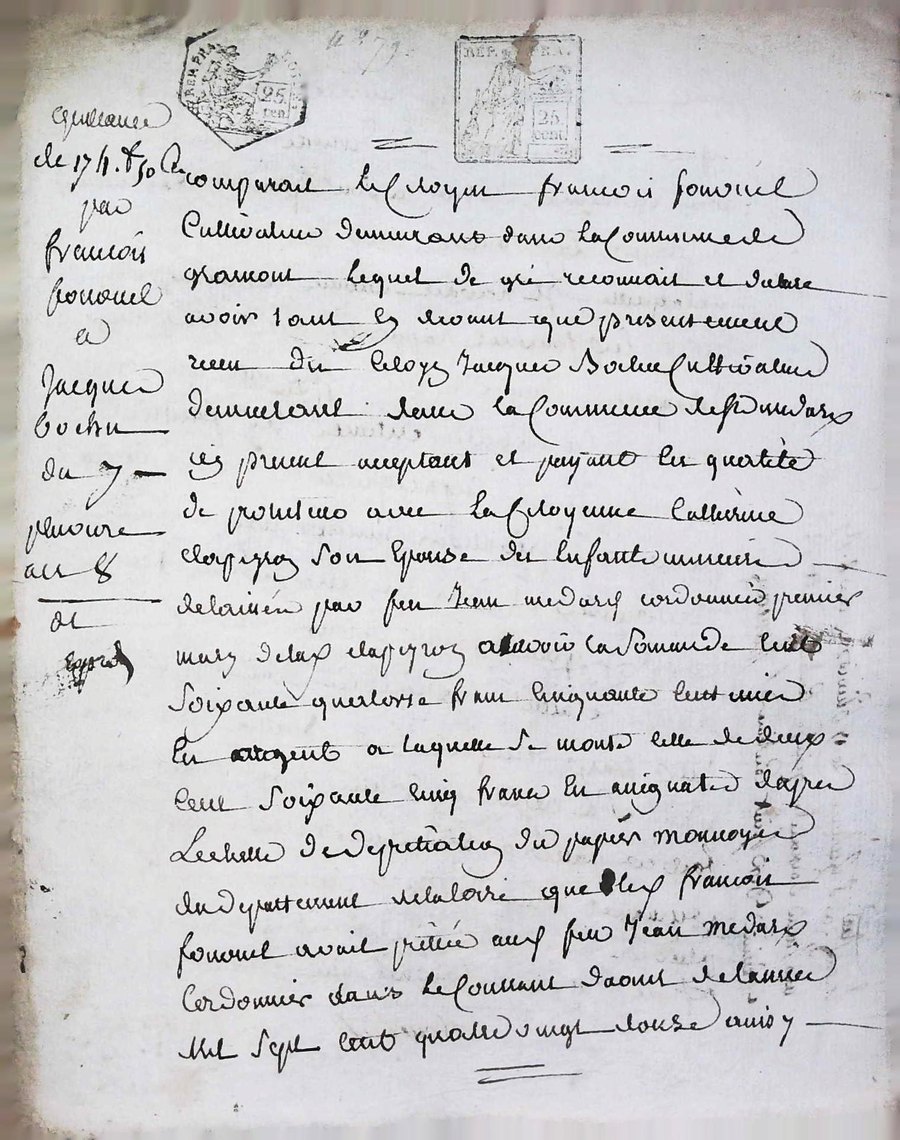 REP. FRA.
25
cen.
REP. FRA.
25
cent.
n° 79
quittance
de 174 f 50 c
par
francois
fonouel
a
Jacques
bochu
du 7
pluviose
an 8
dt
comparait le Citoyen francois fonouel
Cultivateur demeurant dans la Commune de
gramont lequel de gré reconnait et declare
avoir tant cy devant que presentement
recu du citoyen Jacques Bochu Cultivateur
demeurant dans la Commune de st medard
icy present acceptant et payant en qualité
de avec la Citoyenne Catherine
clapeyron son Epouse des Enfants mineurs
delaissés par feu Jean medard cordonnier premier
mary de lad clapeyron a savoir la Somme de Cent
Soixante quatorse franc Cinquante Centimes
En argent a laquelle se monte celle de deux
Cent Soixante Cinq franc En assignats dapres
Lechelle de depretiation du papier monnoye
du departtement de la loire que led francois
fonouel avait pretée aud feu Jean medard
Cordonnier dans le Courrant daout de lannée
Mil Sept Cent quatre vingt douse ainsy